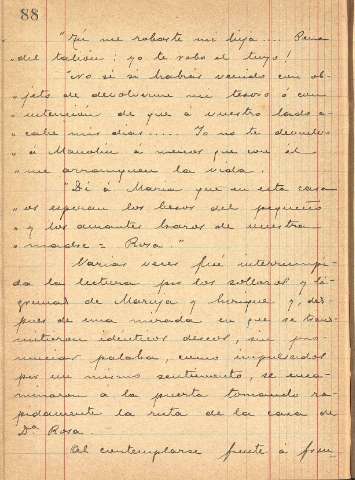 88
"Tu me robaste mi hija.... Pena
" del talión: yo te robo el tuyo!
"No sé si habrás venido con ob-
" jeto de devolverme mi tesoro ó con
" intención de que á vuestro lado a-
" cabe mis dias.... Yo no te devuelvo
" á Manolín á menos que con él
" me arranquen la vida.
"Dí á Maria que en esta casa
" os esperan los besos del pequeño
" y los amantes brazos de vuestra
" madre = Rosa."
Varias veces fué interrumpi-
da la lectura por los sollozos y lá-
grimas de Maruja y Enrique y, des-
pues de una mirada en que se trans-
mitieron idénticos deseos, sin pro-
nunciar palabra, como impulsados
por un mismo sentimiento, se enca-
minaron a la puerta tomando rá-
pidamente la ruta de la casa de
Dª Rosa.
Al contemplarse frente á fren-